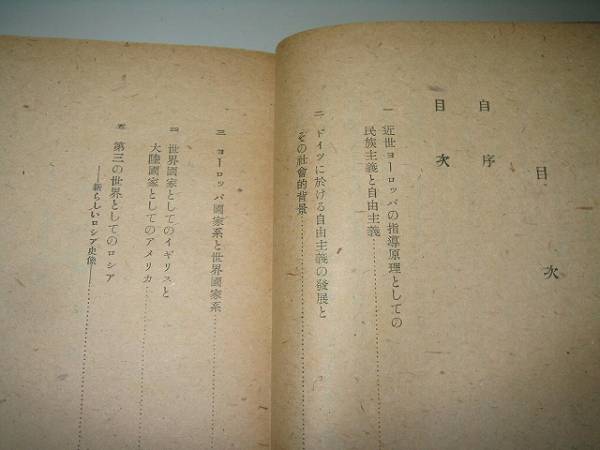 目次
自序
目次
一 近世ヨーロッパの指導原理としての
民族主義と自由主義
二 ドイツに於ける自由主義の發展と
その社會的背景
三 ヨーロッパ國家系と世界國家系
四 世界國家としてのイギリスと
大陸國家としてのアメリカ
五 第三の世界としてのロシア
――新らしいロシア史像――